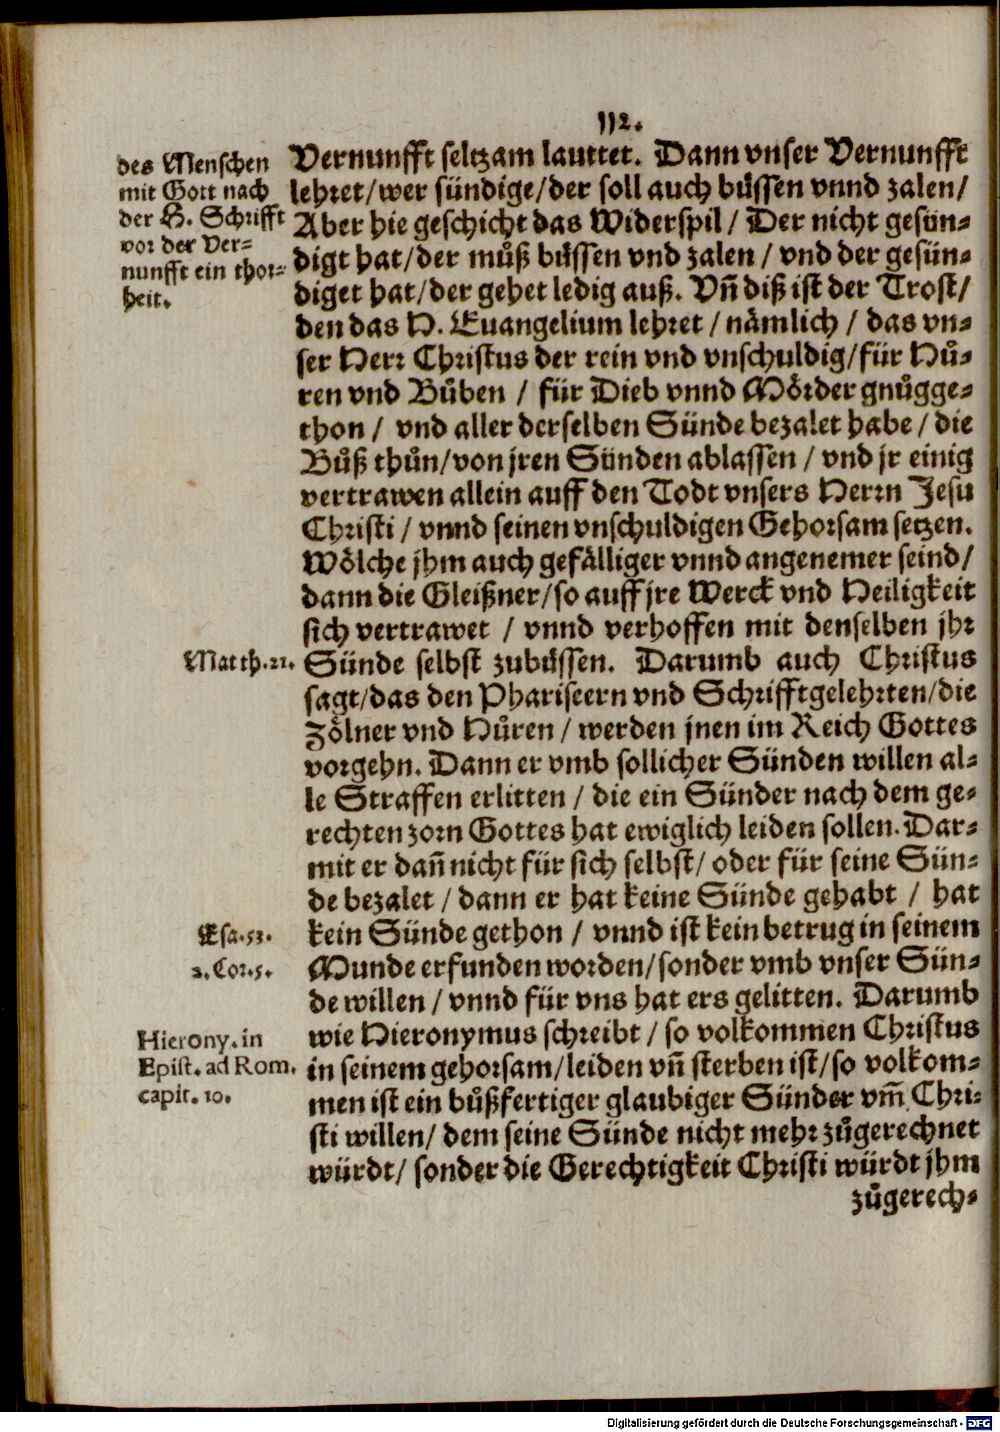 112.
des Menschen
mit Gott nach
der H. Schrifft
vor der Ver-
nunfft ein thor-
heit.
Vernunfft seltzam lauttet. Dann vnser Vernunfft
lehret/wer sündige/der soll auch büssen vnnd zalen/
Aber hie geschicht das Widerspil/ Der nicht gesün-
digt hat/der muͦß büssen vnd zalen / vnd der gesün-
diget hat/der gehet ledig auß. Vñ diß ist der Trost/
den das H. Euangelium lehret / nämlich / das vn-
ser Herr Christus der rein vnd vnschuldig/für Huͦ-
ren vnd Buͦben / für Dieb vnnd Mörder gnuͦgge-
thon / vnd aller derselben Sünde bezalet habe / die
Buͦß thuͦn/von jren Sünden ablassen / vnd jr einig
vertrawen allein auff den Todt vnsers Herrn Jesu
Christi / vnnd seinen vnschuldigen Gehorsam setzen.
Wölche jhm auch gefälliger vnnd angenemer seind/
dann die Gleißner/so auff jre Werck vnd Heiligkeit
sich vertrawet / vnnd verhoffen mit denselben jhr
Matth.21.
Sünde selbst zubüssen. Darumb auch Christus
sagt/das den Phariseern vnd Schrifftgelehrten/die
Zölner vnd Huͦren / werden jnen im Reich Gottes
vorgehn. Dann er vmb sollicher Sünden willen al-
le Straffen erlitten / die ein Sünder nach dem ge-
rechten zorn Gottes hat ewiglich leiden sollen. Dar-
mit er dañ nicht für sich selbst/ oder für seine Sün-
de bezalet / dann er hat keine Sünde gehabt / hat
Esa.53.
kein Sünde gethon / vnnd ist kein betrug in seinem
2.Cor.5.
Munde erfunden worden/sonder vmb vnser Sün-
de willen / vnnd für vns hat ers gelitten. Darumb
Hierony. in
Epist. ad Rom.
capit. 10.
wie Hieronymus schreibt / so volkommen Christus
in seinem gehorsam/leiden vñ sterben ist/so volkom-
men ist ein buͦßfertiger glaubiger Sünder vm̃ Chri-
sti willen/ dem seine Sünde nicht mehr zuͦgerechnet
würdt/ sonder die Gerechtigkeit Christi würdt jhm
zuͦgerech-
Digitalisierung gefördert durch die Deutsche Forschungsgemeinschaft - DFG